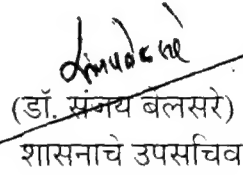 (डॉ. संजय बेलसरे)
शासनाचे उपसचिव